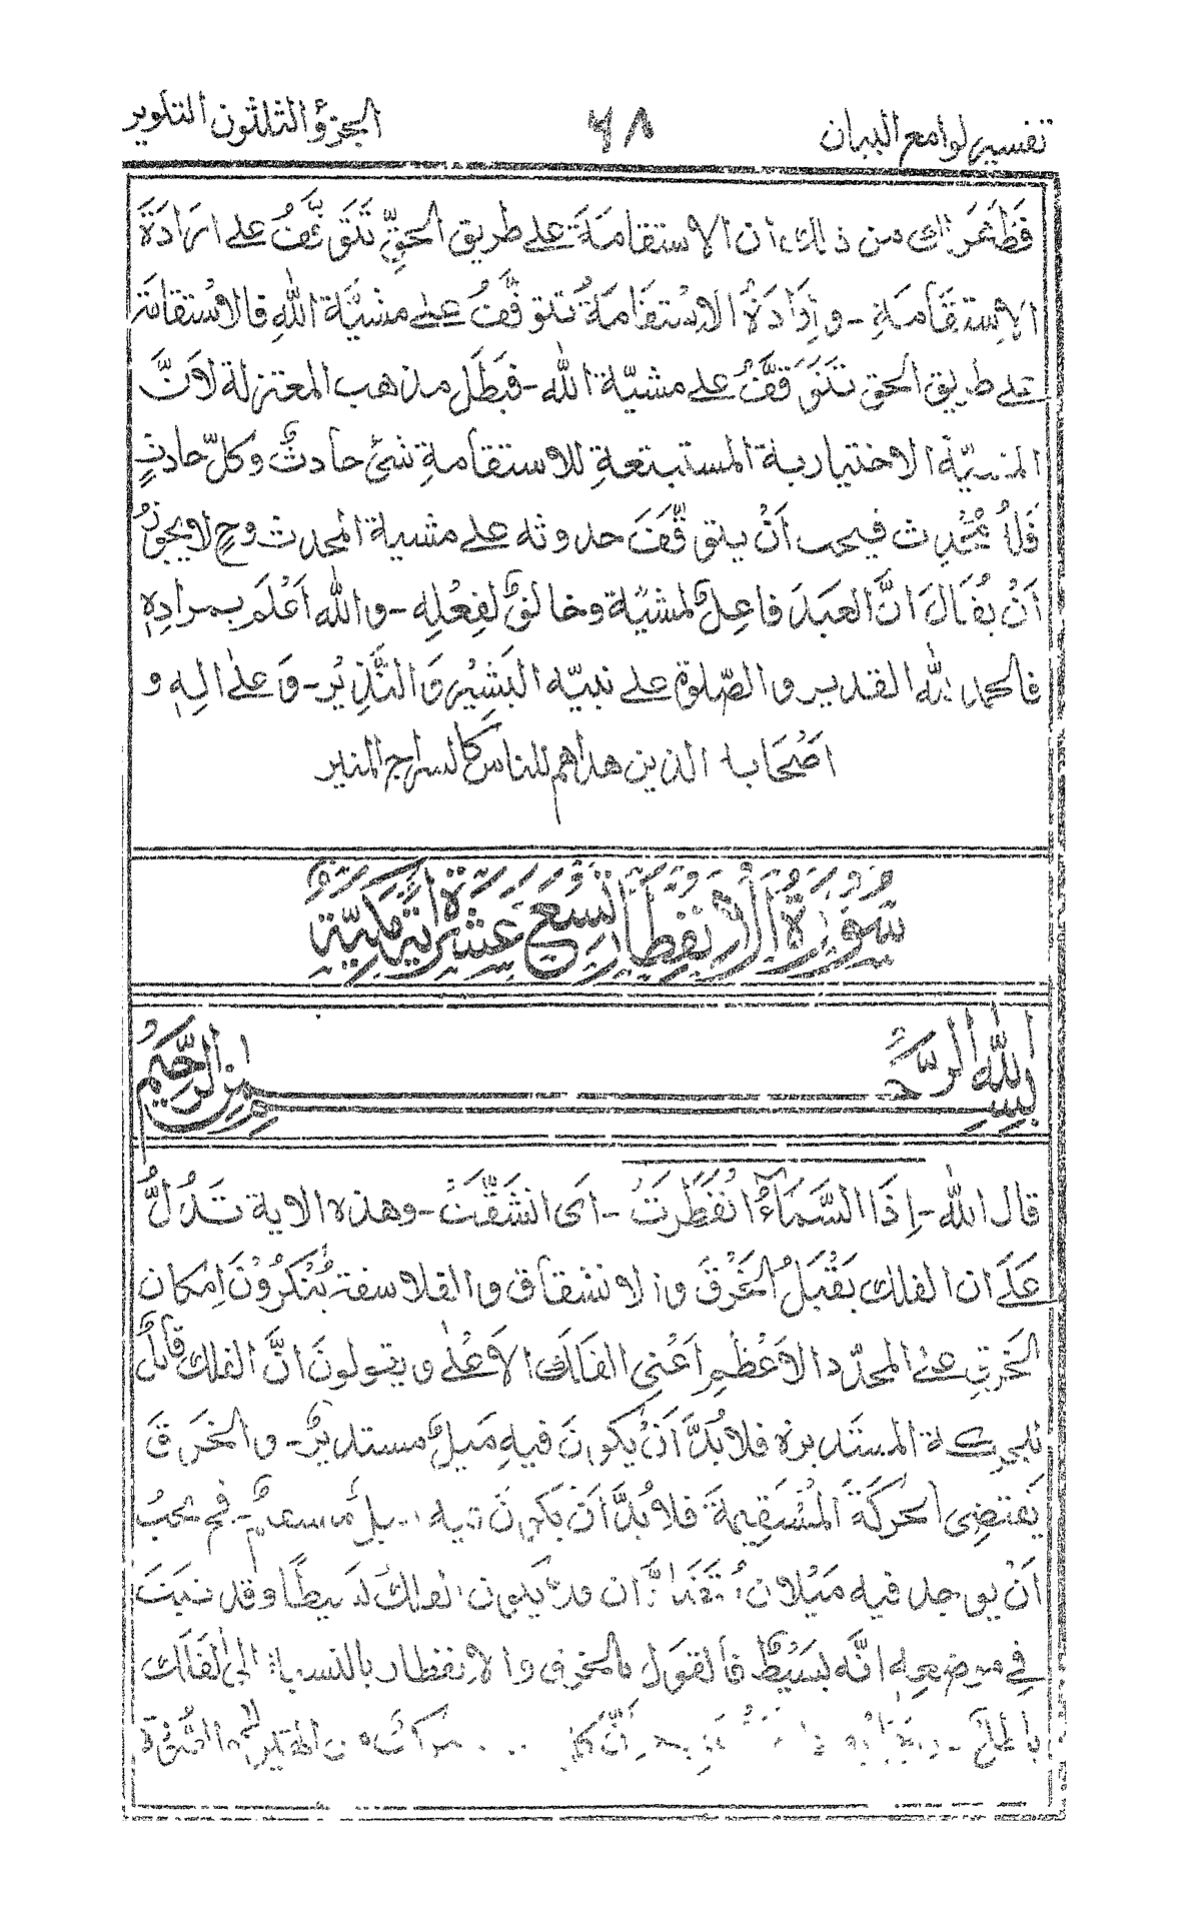 تفسير لوامع البيان ٦٨ الجزؤ الثلثون التكوير
فَظَهَرَ لك من ذلك ان الاستقامَةَ على طريق الحقّ تَتَوَقَّفُ على ارَادَةِ
الاِستقَامةِ - و اِرَادَةُ الاِسْتقَامَةُ تتوقَّفُ على مشيَّة اللّٰهِ فالاسْتقامة
على طريق الحق تتَوَقَّفُ على مشيّة اللّٰه - فبَطَل مذهب المعتزلة لاَنَّ
المشيّة الاختيارية المستتبعةِ للاستقامةِ شئ حادثٌ وكلّ حادثٍ
فَلَهُ مُحْدِث فيجب اَنْ يتوقَّفَ حدوثه على مشية المحدث وحٍ لا يجوزُ
اَنْ يُقَالَ انَّ العبدَ فاعِلٌ لمشيّة وخالقٌ لفِعْلِه - واللّٰه اَعْلَم بمرادِهٖ
فالحمد للّٰه القدير والصّلوة على نبيّه البَشِيْر وَالنَّذِيْر - وَعلىٰ اٰلِهٖ و
اصْحَابه الذين هداهم للناس كالسراج المنير
سُوْرَةُ الْاِنفِطَارِ تِسْعَ عَشَرَةَ اٰيَة مَكِيَّةٌ
بِسْمِ اللّٰهِ الرَّحْمٰنِ الرَّحِيْمِ
قال اللّٰه - اِذَا السَّمَاءُ انْفَطَرَتْ - اى انْشَقَّتْ - وهذه الاية تَدُلُّ
عَلىَ ان الفلك يَقْبَلُ الخَرْقَ والانشقاق والفلاسفة يُنْكِرُوْنَ اِمْكان
الخرقِ على المحدّد الاَعْظمِ اَعْنِى الفلك الاَعْلىٰ ويقولونَ انَّ الفلك قابِلٌ
للحركة المستديرة فلا بُدَّ اَنْ يكونَ فيه مَيلٌ مستديرٌ - والخَرق
يَقتضِى الحركَةَ المُسْتَقِيمةَ فلا بُدَّ اَنْ يكون فيه ميلٌ مستقيمٌ - فح يجبُ
اَنْ يوجد فيه مَيْلان ان يكون الفلك بسيطًا وقد ثبتَ
فى موضعِهٖ انَّه بسَيْطٌ فالقول بالخرق والانفطار بالنسبة الى الفلك
باطلٌ -